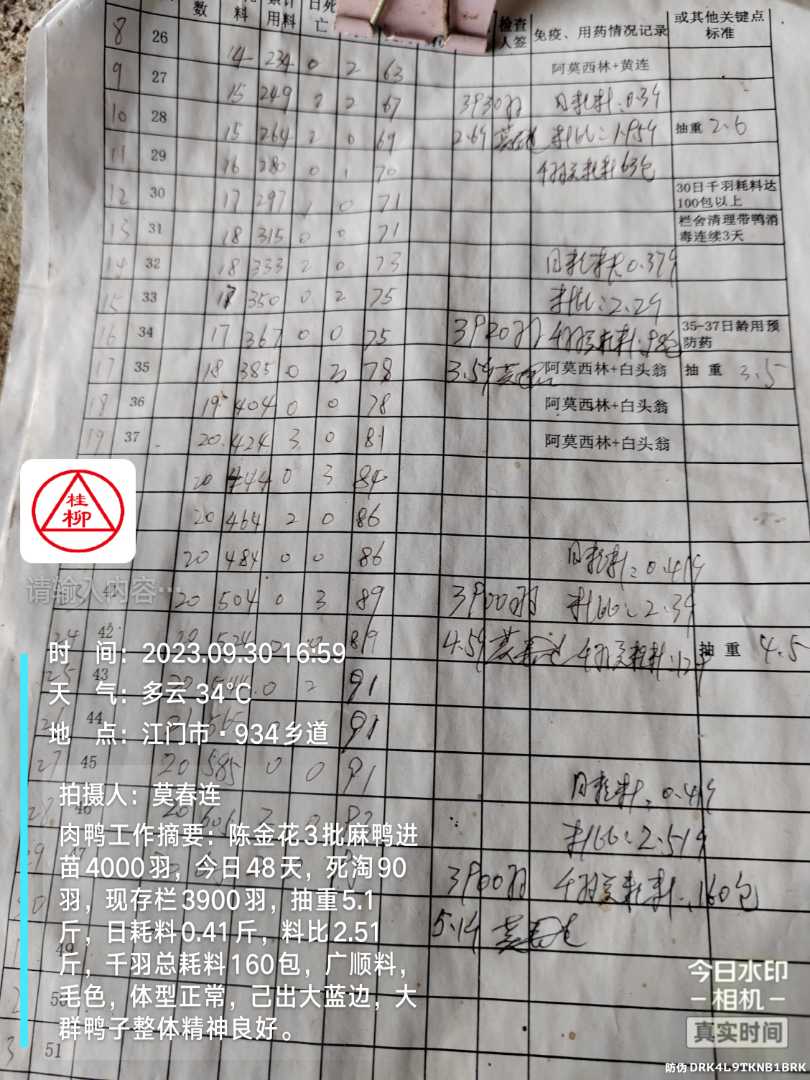 数 料 用料 日死亡 检查人签 免疫、用药情况记录 或其他关键点标准
8 26
14 234 0 2 63 阿莫西林+黄连
9 27
15 249 2 67 3930羽 日耗料:0.39
10 28
15 264 2 0 69 2.69 料比:1.959 抽重 2.6
11 29
16 280 0 1 70 千羽总耗料63包
12 30 30日千羽耗料达100包以上
17 297 1 0 71
13 31 栏舍清理带鸭消毒连续3天
18 315 0 0 71
14 32
18 333 2 0 73 日耗料0.379
15 33
18 350 0 2 75 料比:2.29
16 34
17 367 0 0 75 3920羽 千羽总耗料:98包 35-37日龄用预防药
17 35
18 385 0 78 3.59 阿莫西林+白头翁 抽重 3.5
18 36
19 404 0 0 78 阿莫西林+白头翁
19 37
20 424 3 0 81 阿莫西林+白头翁
20 444 0 3 84
20 464 2 0 86
20 484 0 0 86 日耗料:0.419
20 504 0 3 89 3900羽 料比:2.39
42
4.59 千羽总耗料 抽重 4.5
43
2 91
44
91
45
20 585 0 0 91 日耗料:0.419
料比:2.519
3900羽 千羽总耗料:160包
5.19
51
桂柳
请输入内容…
时 间:2023.09.30 16:59
天 气:多云 34℃
地 点:江门市·934乡道
拍摄人:莫春连
肉鸭工作摘要:陈金花3批麻鸭进
苗4000羽,今日48天,死淘90
羽,现存栏3900羽,抽重5.1
斤,日耗料0.41斤,料比2.51
斤,千羽总耗料160包,广顺料,
毛色,体型正常,己出大蓝边,大
群鸭子整体精神良好。
今日水印
-相机-
真实时间
防伪 DRK4L9TKNB1BRK